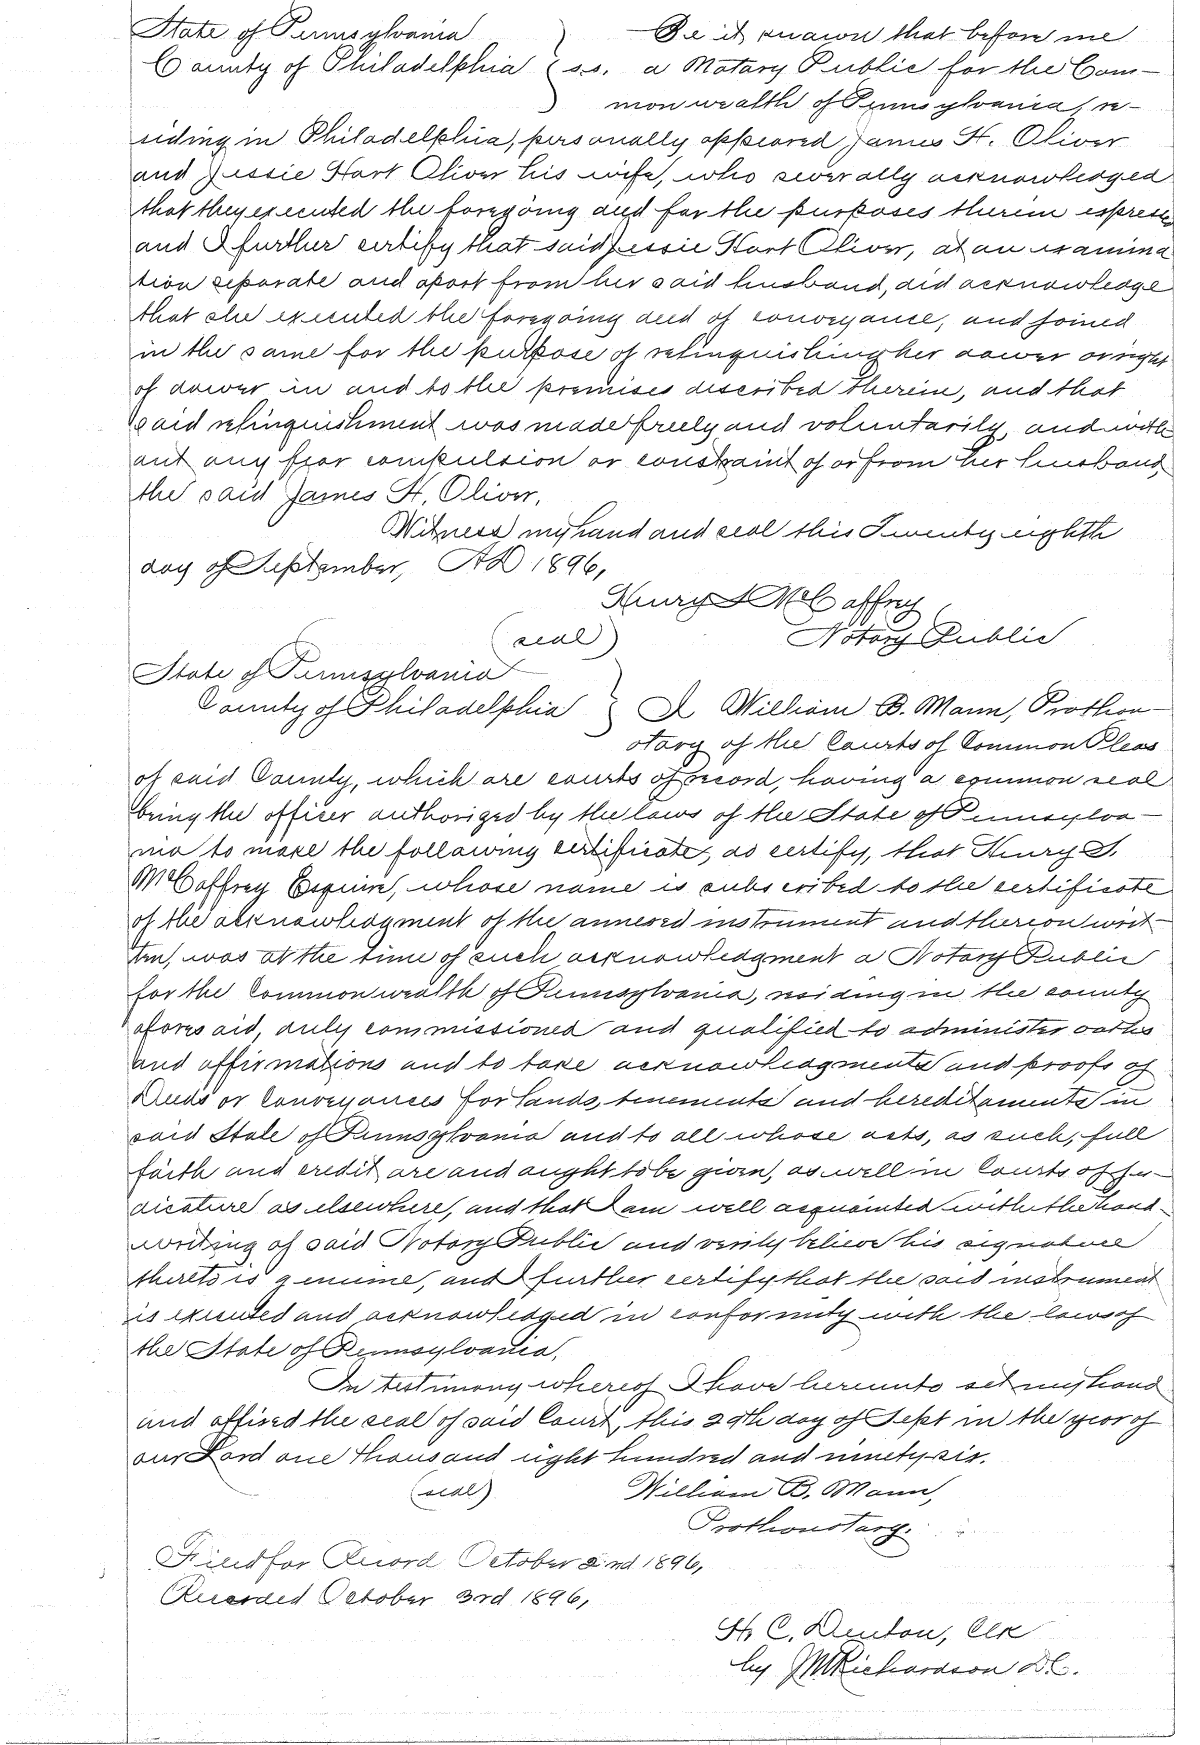 State of Pennsylvania Be it known that before me
County of Philadelphia s.s. a Notary Public for the Com-
monwealth of Pennsylvania, re-
siding in Philadelphia, personally appeared James H. Oliver
and Jessie Hart Oliver his wife, who severally acknowledged
that they executed the foregoing deed for the purposes therein expressed
and I further certify that said Jessie Hart Oliver, at an examina
tion separate and apart from her said husband, did acknowledge
that she executed the foregoing deed of conveyance, and joined
in the same for the purpose of relinquishing her dower or right
of dower in and to the premises described therein, and that
said relinquishment was made freely and voluntarily, and with
out any fear compulsion or constraint of or from her husband,
the said James H. Oliver.
Witness my hand and seal this Twenty eighth
day of September, AD 1896,
Henry S McCaffrey
(seal) Notary Public
State of Pennsylvania
County of Philadelphia I William B. Mann, Prothon-
otary of the Courts of Common Pleas
of said County, which are courts of record, having a common seal
being the officer authorized by the laws of the State of Pennsylva-
nia to make the following certificate, do certify, that Henry S.
McCaffrey Esquire, whose name is subscribed to the certificate
of the acknowledgment of the annexed instrument and thereon writ-
ten, was at the time of such acknowledgment a Notary Public
for the Commonwealth of Pennsylvania, residing in the county
aforesaid, duly commissioned and qualified to administer oaths
and affirmations and to take acknowledgments and proofs of
Deeds or Conveyances for lands, tenements and hereditaments in
said State of Pennsylvania and to all whose acts, as such, full
faith and credit are and ought to be given, as well in Courts of Ju-
dicature as elsewhere, and that I am well acquainted with the hand-
writing of said Notary Public and verily believe his signature
thereto is genuine, and I further certify that the said instrument
is executed and acknowledged in conformity with the laws of
the State of Pennsylvania.
In testimony whereof I have hereunto set my hand
and affixed the seal of said Court, this 29th day of Sept in the year of
our Lord one thousand eight hundred and ninety-six.
(seal) William B. Mann,
Prothonotary.
Filed for Record October 2nd 1896,
Recorded October 3rd 1896,
H. C. Denton, Clk
by JMRichardson D.C.